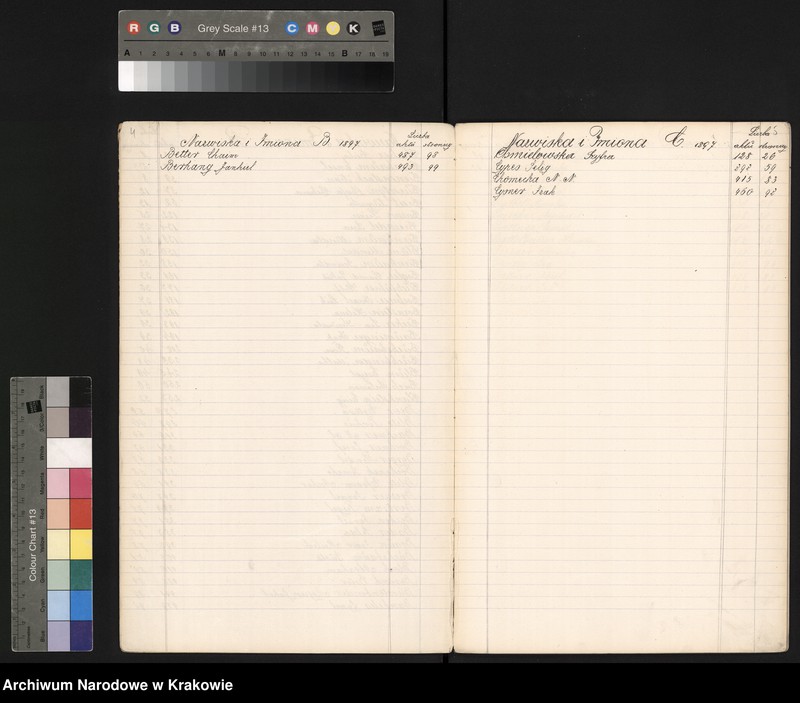 R G B Grey Scale #13 C M Y K
A 1 2 3 4 5 6 M 8 9 10 11 12 13 14 15 B 17 18 19
4
Nazwiska i Imiona B. 1897
Liczba
aktu strony
Better Chaim 487 98
Jankiel 493 99
Nazwiska i Imiona C. 1897
Liczba
aktu strony
Scyfra 128 26
Cypes Selig 292 59
N. N. 415 83
Cymer Izak 460 92
Colour Chart #13
Blue Cyan Green Yellow Red Magenta White 3/Color Black
Archiwum Narodowe w Krakowie